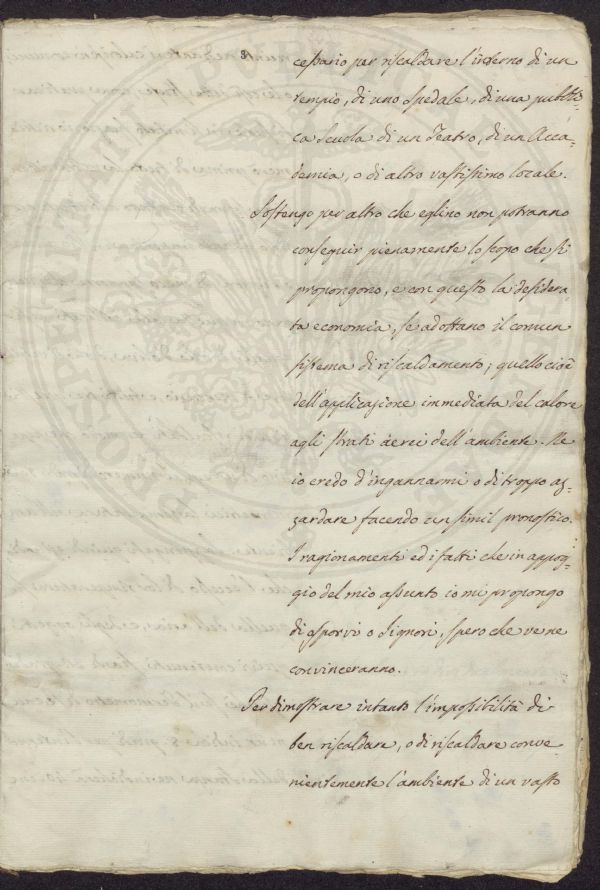 3
cessario per riscaldare l'interno di un
tempio, di uno Spedale, di una publi-
ca Scuola di un Teatro, di un Acca-
demia, o di altro vastissimo locale.
Sostengo per altro che eglino non potranno
conseguir pienamente lo scopo che si
propongono, e con questo la desidera-
ta economia, se adottano il comun
sistema di riscaldamento; quello cioè
dell'applicazione immediata del calore
agli strati aerei dell'ambiente. Ne
io credo d'ingannarmi o di troppo az-
zardare facendo un simil pronostico.
I ragionamenti ed i fatti che in appog-
gio del mio assunto io mi propongo
di esporvi o Signori, spero che ve ne
convinceranno.
Per dimostrare intanto l'impossibilità di
ben riscaldare, o di riscaldare conve-
nientemente l'ambiente di un vasto